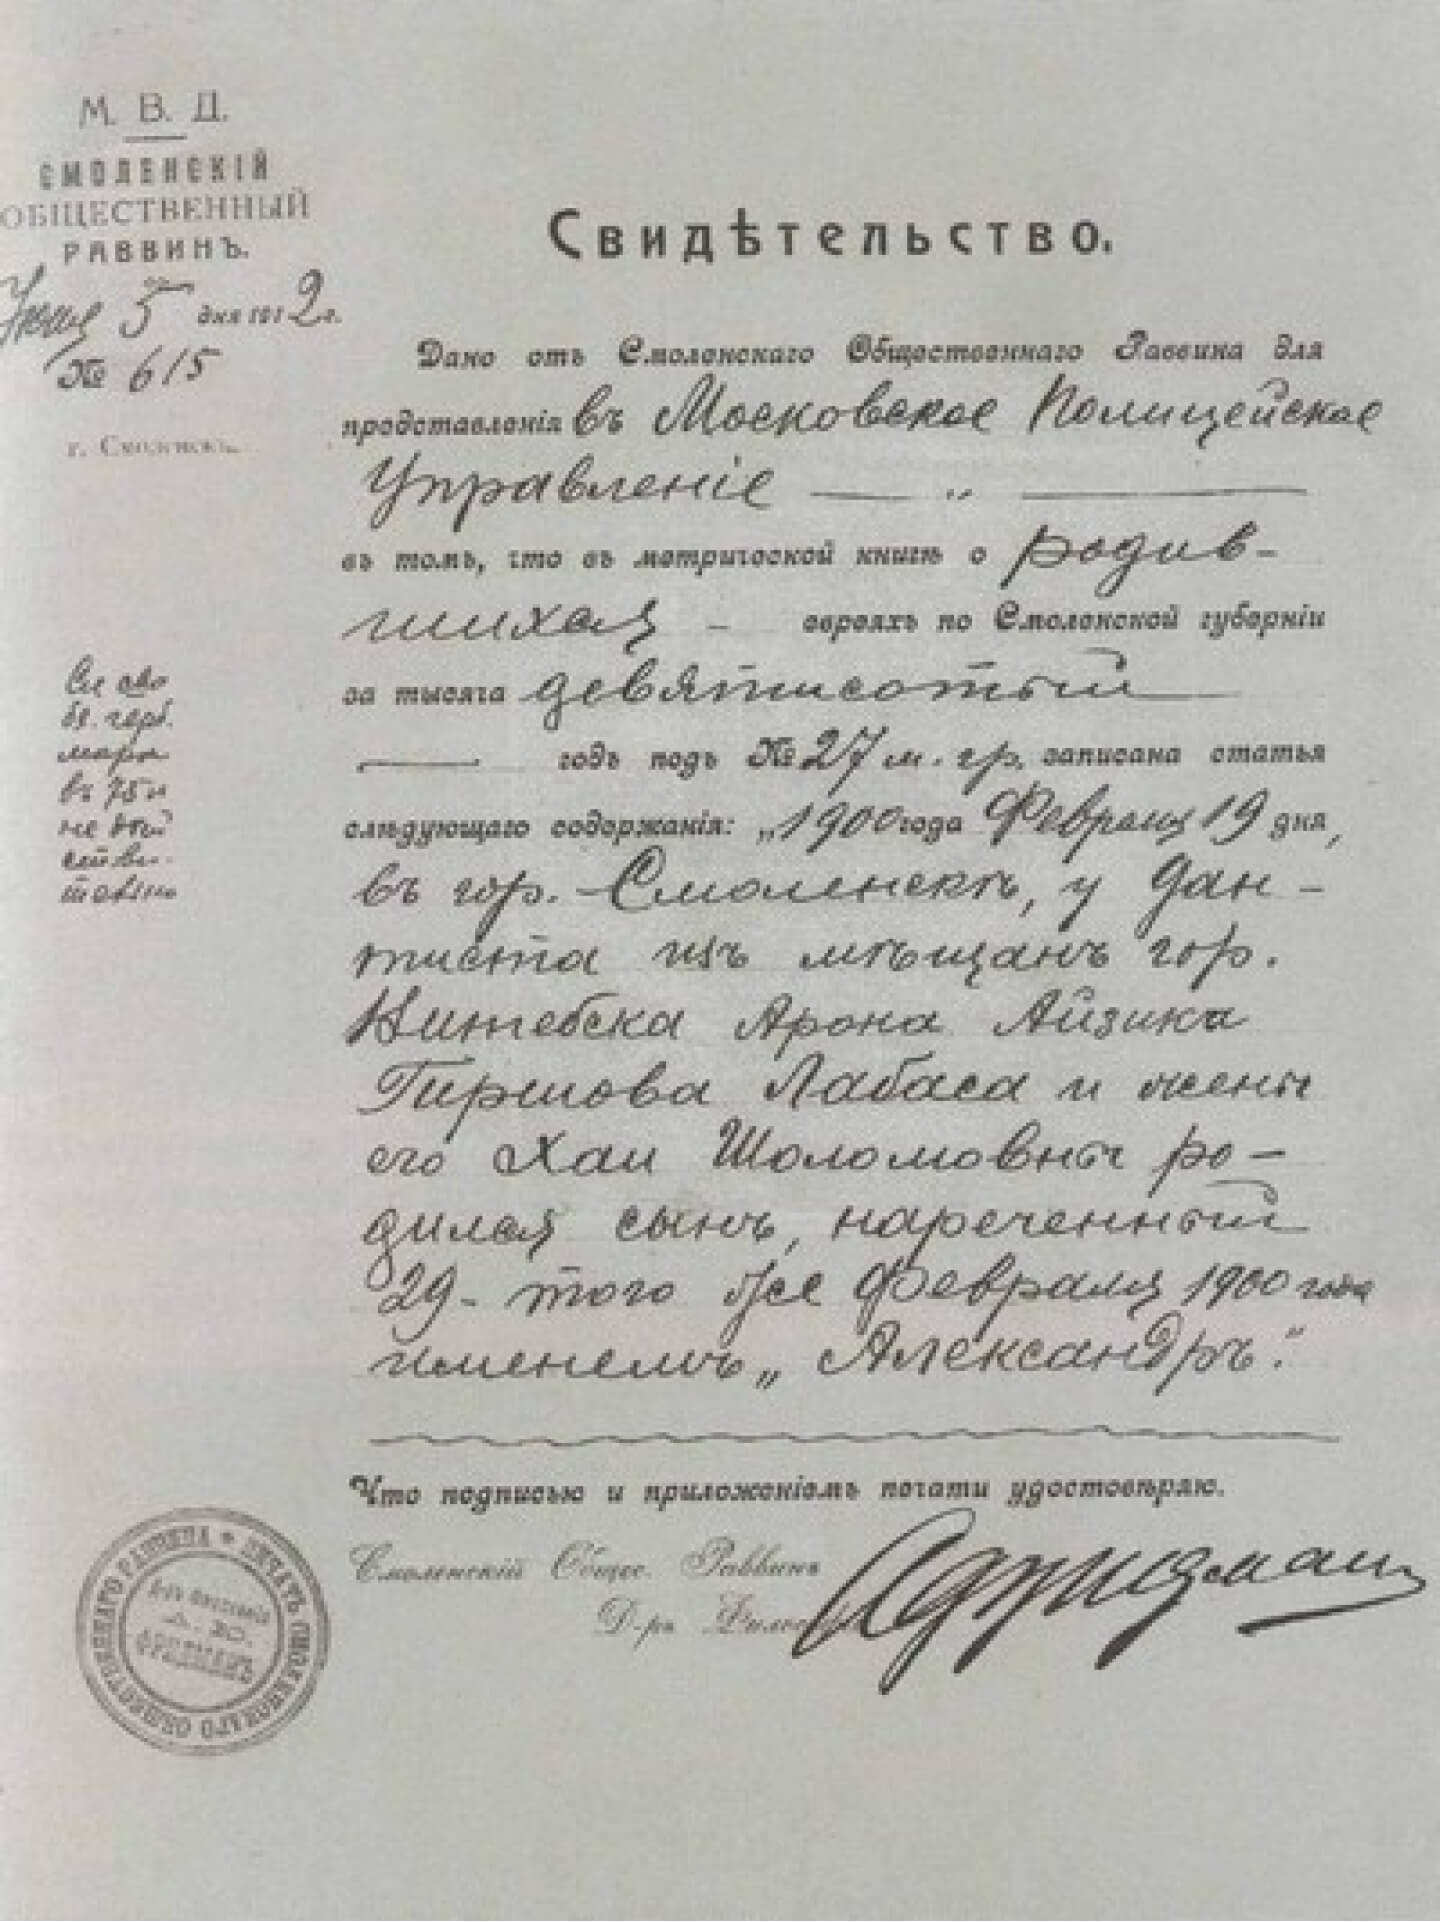 М. В. Д.
СМОЛЕНСКІЙ
ОБЩЕСТВЕННЫЙ
РАВВИНЪ.
Іюня 5 дня 1912 г.
№ 615
г. Смоленскъ.
Свидѣтельство.
Дано отъ Смоленскаго Общественнаго Раввина для
представленія въ Московское Полицейское
Управленіе — „ —
въ томъ, что въ метрической книгѣ о родив-
шихся - евреяхъ по Смоленской губерніи
за тысяча девятисотый
— годъ подъ № 27 м. гр. записана статья
слѣдующаго содержанія: „1900 года Февраля 19 дня,
въ гор. Смоленскѣ, у дан-
тиста изъ мѣщанъ гор.
Витебска Арона Айзика
Гиршова Лабаса и жены
его Хаи Шоломовны ро-
дился сынъ, нареченный
29-того же Февраля 1900 года
именемъ „Александръ".
Что подписью и приложеніемъ печати удостовѣряю.
Смоленскій Общес. Раввинъ
Д-ръ
бз. герб.
марки
въ 75 к
не дѣй
стви-
тельно
ПЕЧАТЬ СМОЛЕНСКАГО ОБЩЕСТВЕННАГО РАВВИНА *
Д-РЪ ФИЛОСОФІИ
А. Ю.
ФРИДМАНЪ